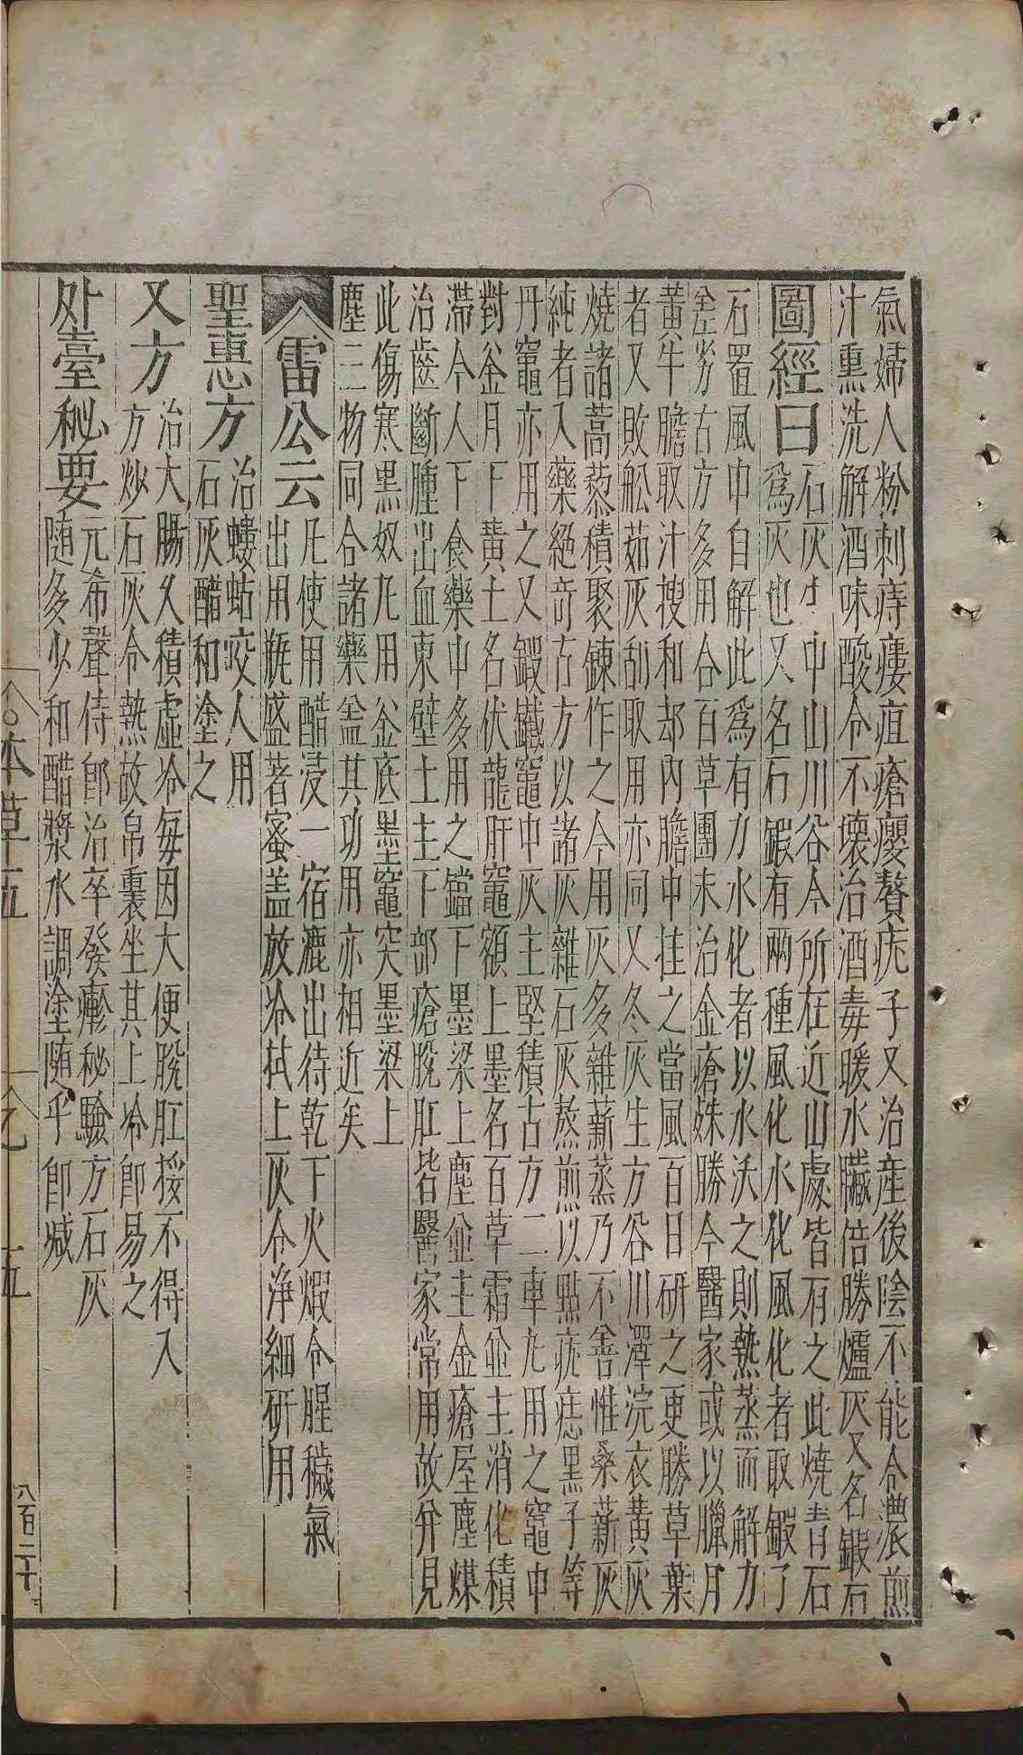 氣婦人粉刺痔瘻疽瘡癭贅疣子又治產後陰不能合濃煎
汁熏洗解酒味酸令不壞治酒毒暖水臟倍勝爐灰又名鍛石
圖經曰石灰生中山川谷今所在近山處皆有之此燒青石
爲灰也又名石鍛有兩種風化水化風化者取鍛了
石置風中自解此爲有力水化者以水沃之則熱蒸而解力
差劣古方多用合百草團末治金瘡姝勝今醫家或以臘月
黃牛膽取汁搜和却內膽中挂之當風百日研之更勝草葉
者又敗舩茹灰刮取用亦同又冬灰生方谷川澤浣衣黃灰
燒諸蒿蔾積聚鍊作之今用灰多雜薪蒸乃不善惟桑薪灰
純者入藥絕奇古方以諸灰雜石灰蒸煎以點疣痣黑子等
丹竈亦用之又鍛鐵竈中灰主堅積古方二車丸用之竈中
對釜月下黃土名伏龍肝竈額上墨名百草霜並主消化積
滯今人下食藥中多用之鐺下墨梁上塵並主金瘡屋塵煤
治齒斷腫出血東壁土主下部瘡脫肛皆醫家常用故并見
此傷寒黑奴丸用釜底墨竈突墨梁上
塵三物同合諸藥盖其功用亦相近矣
雷公云凡使用醋浸一宿漉出待乾下火煆令腥穢氣
出用甁盛著蜜盖放冷拭上灰令淨細研用
聖惠方治螻蛄咬人用
石灰醋和塗之
又方治大腸久積虛冷每因大便脫肛挼不得入
方炒石灰令熱故帛裹坐其上冷即易之
外臺秘要元希聲侍郎治卒發癬秘驗方石灰
隨多少和醋漿水調塗隨手即减
本草五
五
八百二十